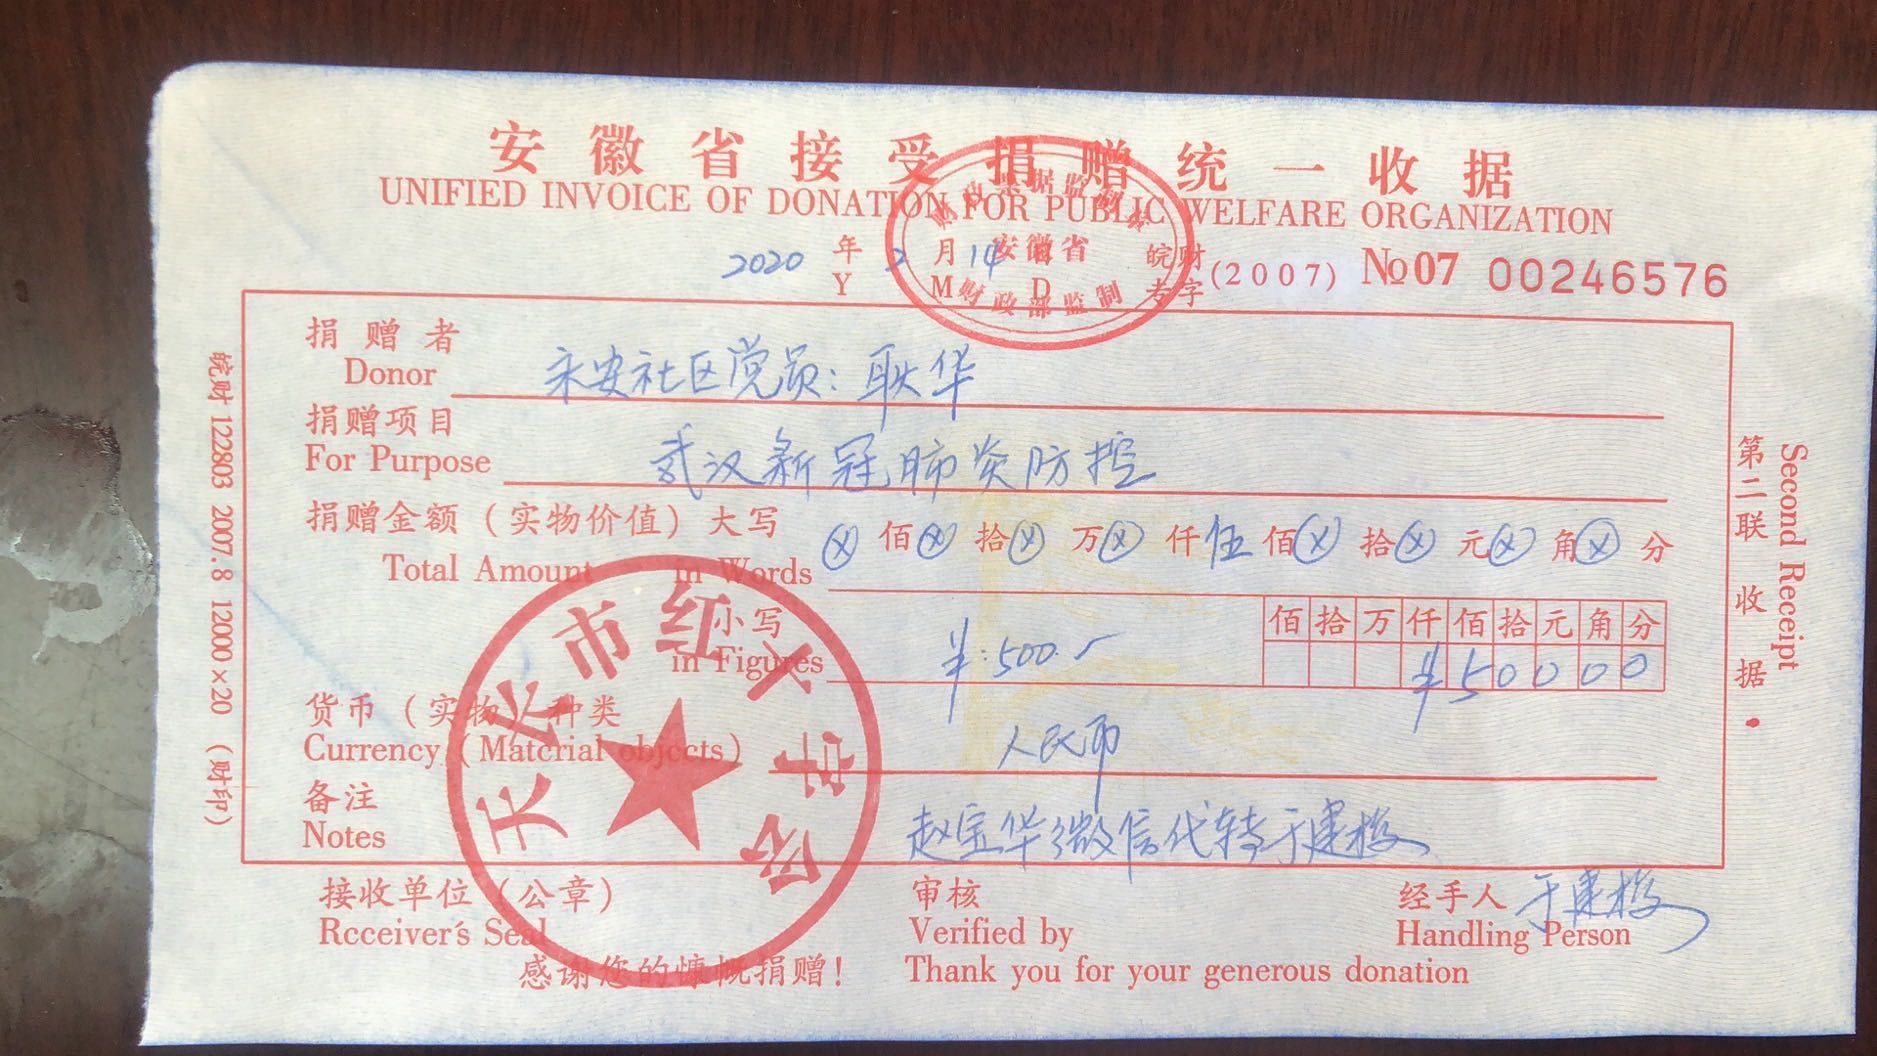 安徽省接受捐赠统一收据
UNIFIED INVOICE OF DONATION FOR PUBLIC WELFARE ORGANIZATION
财政票据监制章
安徽省
财政部监制
2020 年 2 月 14 日
Y M D
皖财专字 (2007) №07 00246576
捐赠者
Donor
永安社区党员：耿华
捐赠项目
For Purpose
武汉新冠肺炎防控
捐赠金额（实物价值）大写 ⓧ 佰 ⓧ 拾 ⓧ 万 ⓧ 仟 伍 佰 ⓧ 拾 ⓧ 元 ⓧ 角 ⓧ 分
Total Amount in Words
小写
in Figures
¥：500.-
佰 拾 万 仟 佰 拾 元 角 分
¥ 5 0 0 0 0
货币（实物）种类
Currency (Material objects)
人民币
备注
Notes
赵宝华微信代转于建
接收单位（公章）
Receiver's Seal
天长市红十字会
审核
Verified by
经手人 于建
Handling Person
感谢您的慷慨捐赠！ Thank you for your generous donation
皖财 122803 2007.8 12000×20 （财印）
第二联 收据·
Second Receipt